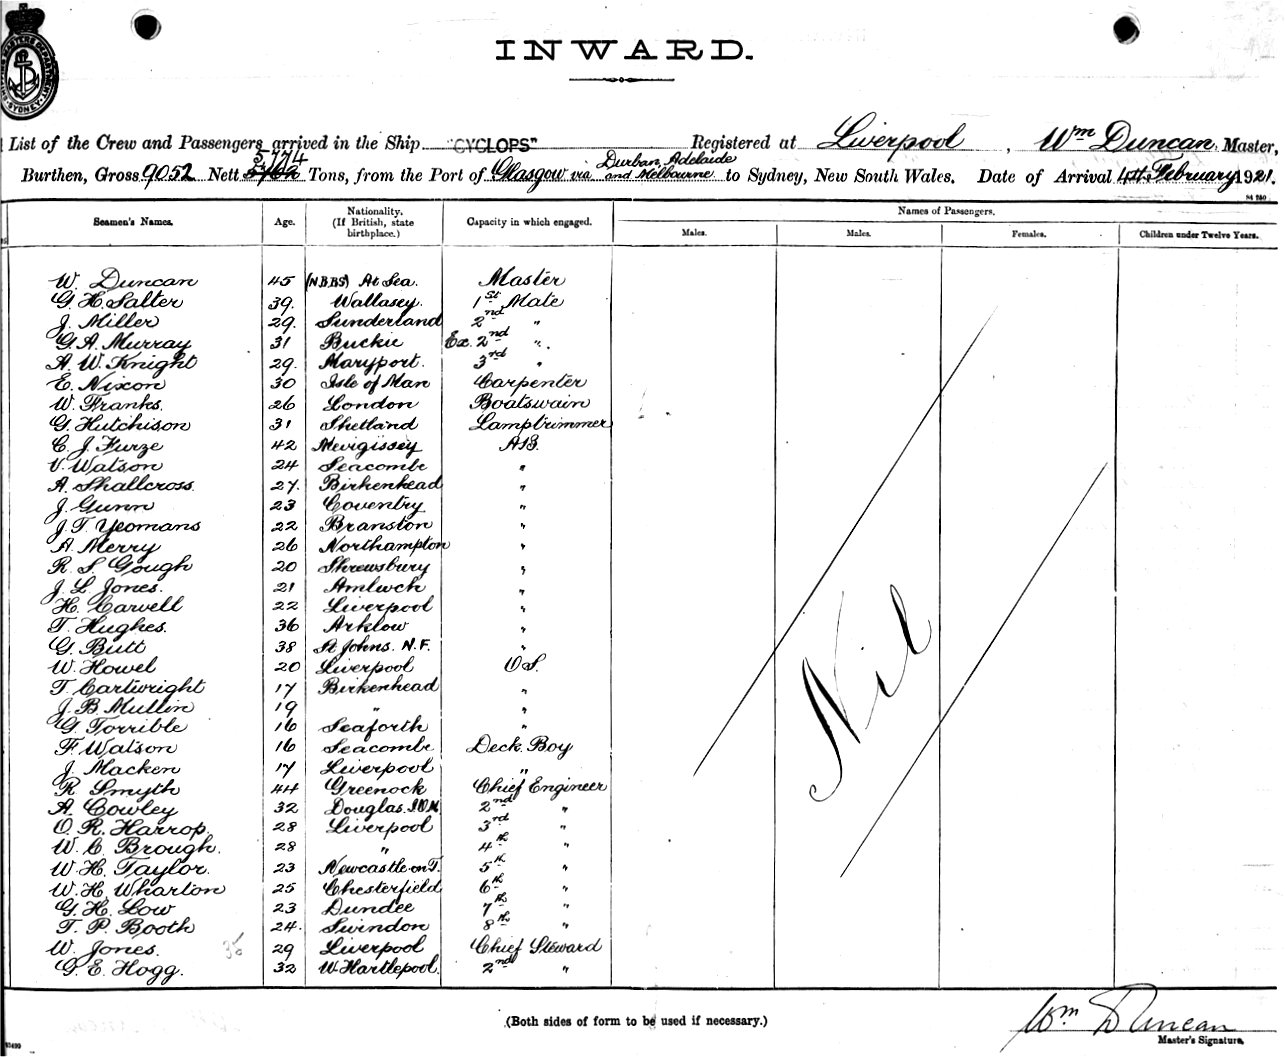 INWARD.
List of the Crew and Passengers arrived in the Ship "CYCLOPS" Registered at Liverpool, Wm Duncan Master,
Burthen, Gross 9052 Nett 5774 Tons, from the Port of Glasgow via Durban, Adelaide and Melbourne to Sydney, New South Wales. Date of Arrival 4th February 1921.
Seamen's Names. Age. Nationality. (If British, state birthplace.) Capacity in which engaged. Names of Passengers.
Males. Males. Females. Children under Twelve Years.
W. Duncan 45 (N.B.BS) At Sea. Master
G. H. Salter 39. Wallasey. 1st Mate
J. Miller 29. Sunderland 2nd "
G. A. Murray 31 Buckie Ex. 2nd ".
A. W. Knight 29. Maryport. 3rd "
E. Nixon 30 Isle of Man Carpenter
W. Franks. 26 London Boatswain
G. Hutchison 31 Shetland Lamptrimmer
C. J. Furze 42 Mevigissey AB.
V. Watson 24 Seacombe "
A. Shallcross. 27. Birkenhead "
J. Gunn 23 Coventry "
J. T. Yeomans 22 Branston "
A. Merry 26 Northampton "
R. S. Gough 20 Shrewsbury "
J. L. Jones. 21 Amlwch "
H. Carvell 22 Liverpool "
T. Hughes. 36 Arklow "
G. Butt 38 St Johns. N.F. "
W. Howel 20 Liverpool OS.
T. Cartwright 17 Birkenhead "
J. B Mullin 19 " "
G. Torrible 16 Seaforth "
F. Watson 16 Seacombe Deck Boy
J. Macken 17 Liverpool "
R Smyth 44 Greenock Chief Engineer
A. Cowley 32 Douglas. I.O.M. 2nd "
O. R. Harrop. 28 Liverpool 3rd "
W. C. Brough. 28 " 4th "
W. H. Taylor. 23 Newcastle-on-T. 5th "
W. H. Wharton 25 Chesterfield 6th "
G. H. Low 23 Dundee 7th "
T. P. Booth 24. Swindon 8th "
W. Jones. 29 Liverpool Chief Steward
G. E. Hogg. 32 W. Hartlepool. 2nd "
Nil
(Both sides of form to be used if necessary.)
Wm Duncan
Master's Signature.